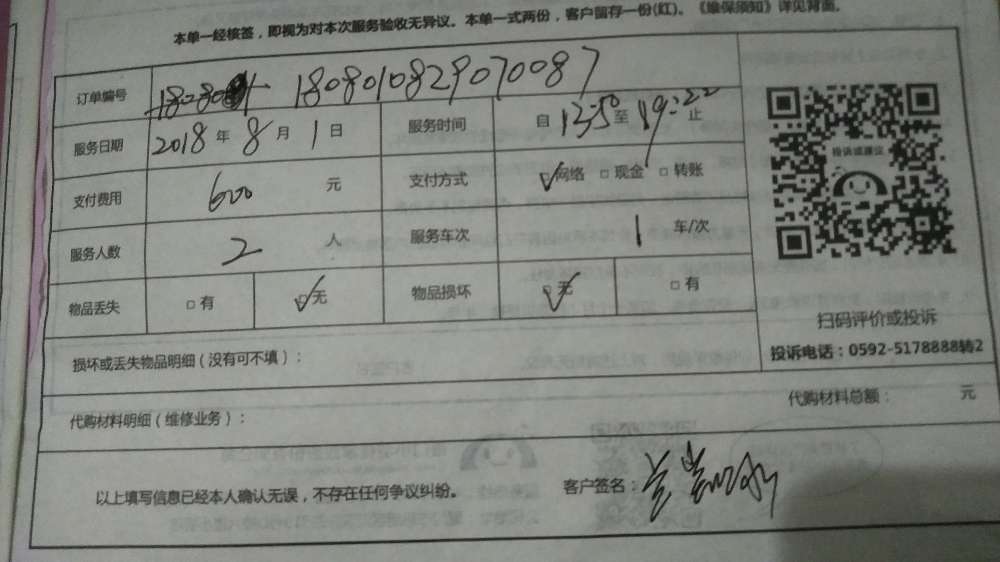 本单一经核签，即视为对本次服务验收无异议。本单一式两份，客户留存一份(红)。《维保须知》详见背面。
订单编号 1808010829070087
服务日期 2018 年 8 月 1 日 服务时间 自 13:50 至 19:22 止
支付费用 600 元 支付方式 ☑网络 □现金 □转账
服务人数 2 人 服务车次 1 车/次
物品丢失 □有 ☑无 物品损坏 ☑无 □有
投诉或建议
扫码评价或投诉
投诉电话：0592-5178888转2
损坏或丢失物品明细（没有可不填）：
代购材料明细（维修业务）： 代购材料总额： 元
以上填写信息已经本人确认无误，不存在任何争议纠纷。 客户签名：